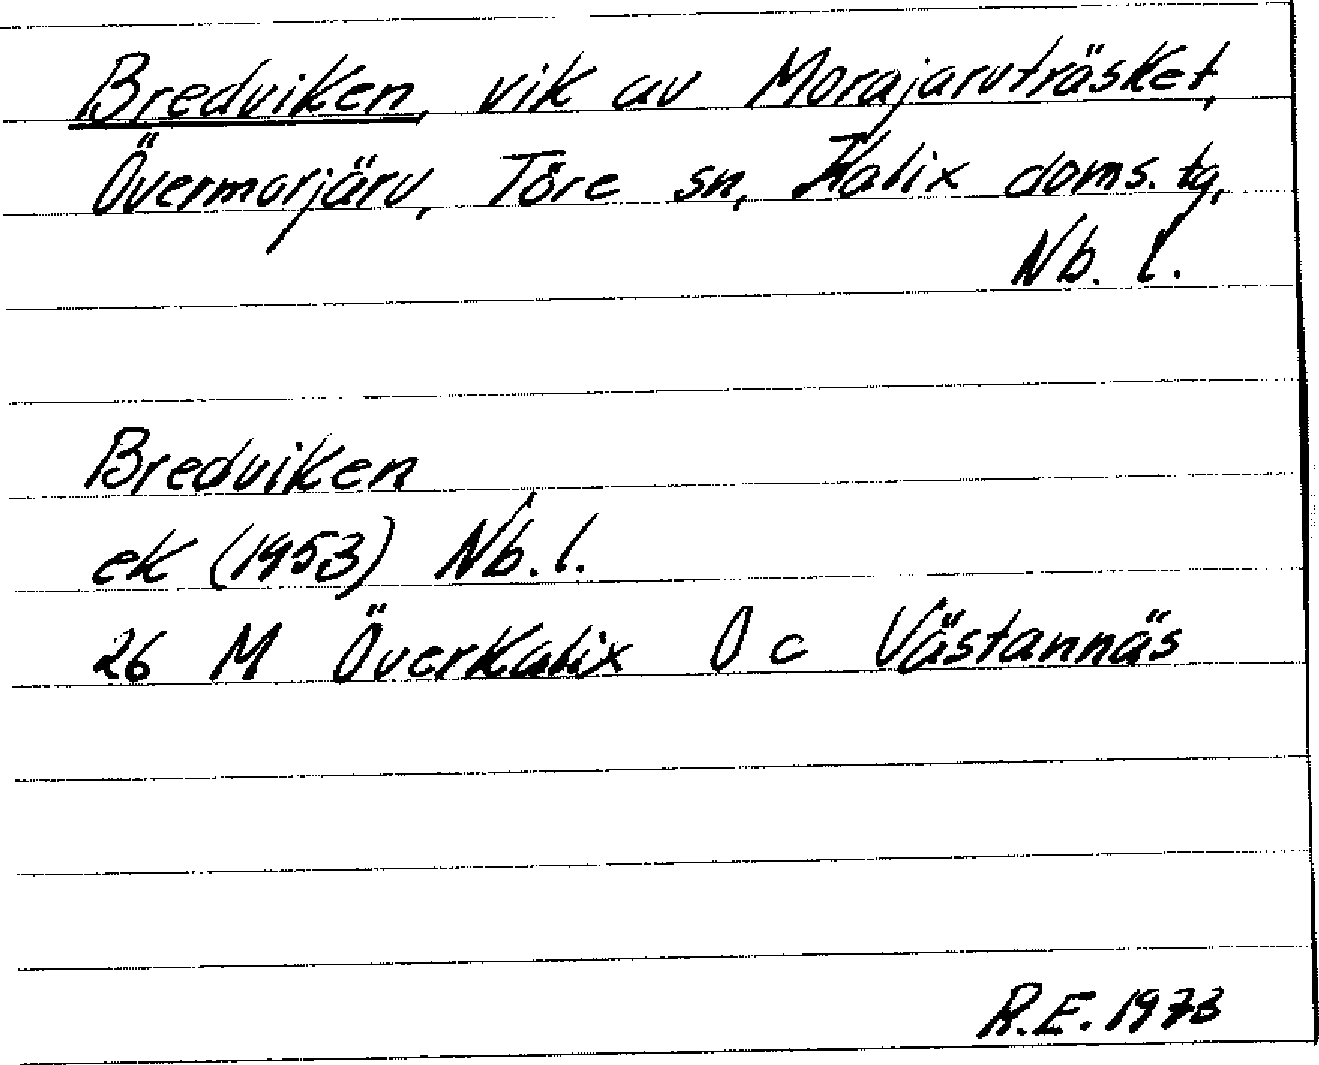 Bredviken, vik av Morajarvträsket,
Övermorjärv, Töre sn, Kalix doms. tg,
Nb. l.
Bredviken
ek (1953) Nb. l.
26 M Överkalix O c Västannäs
R.E. 1973